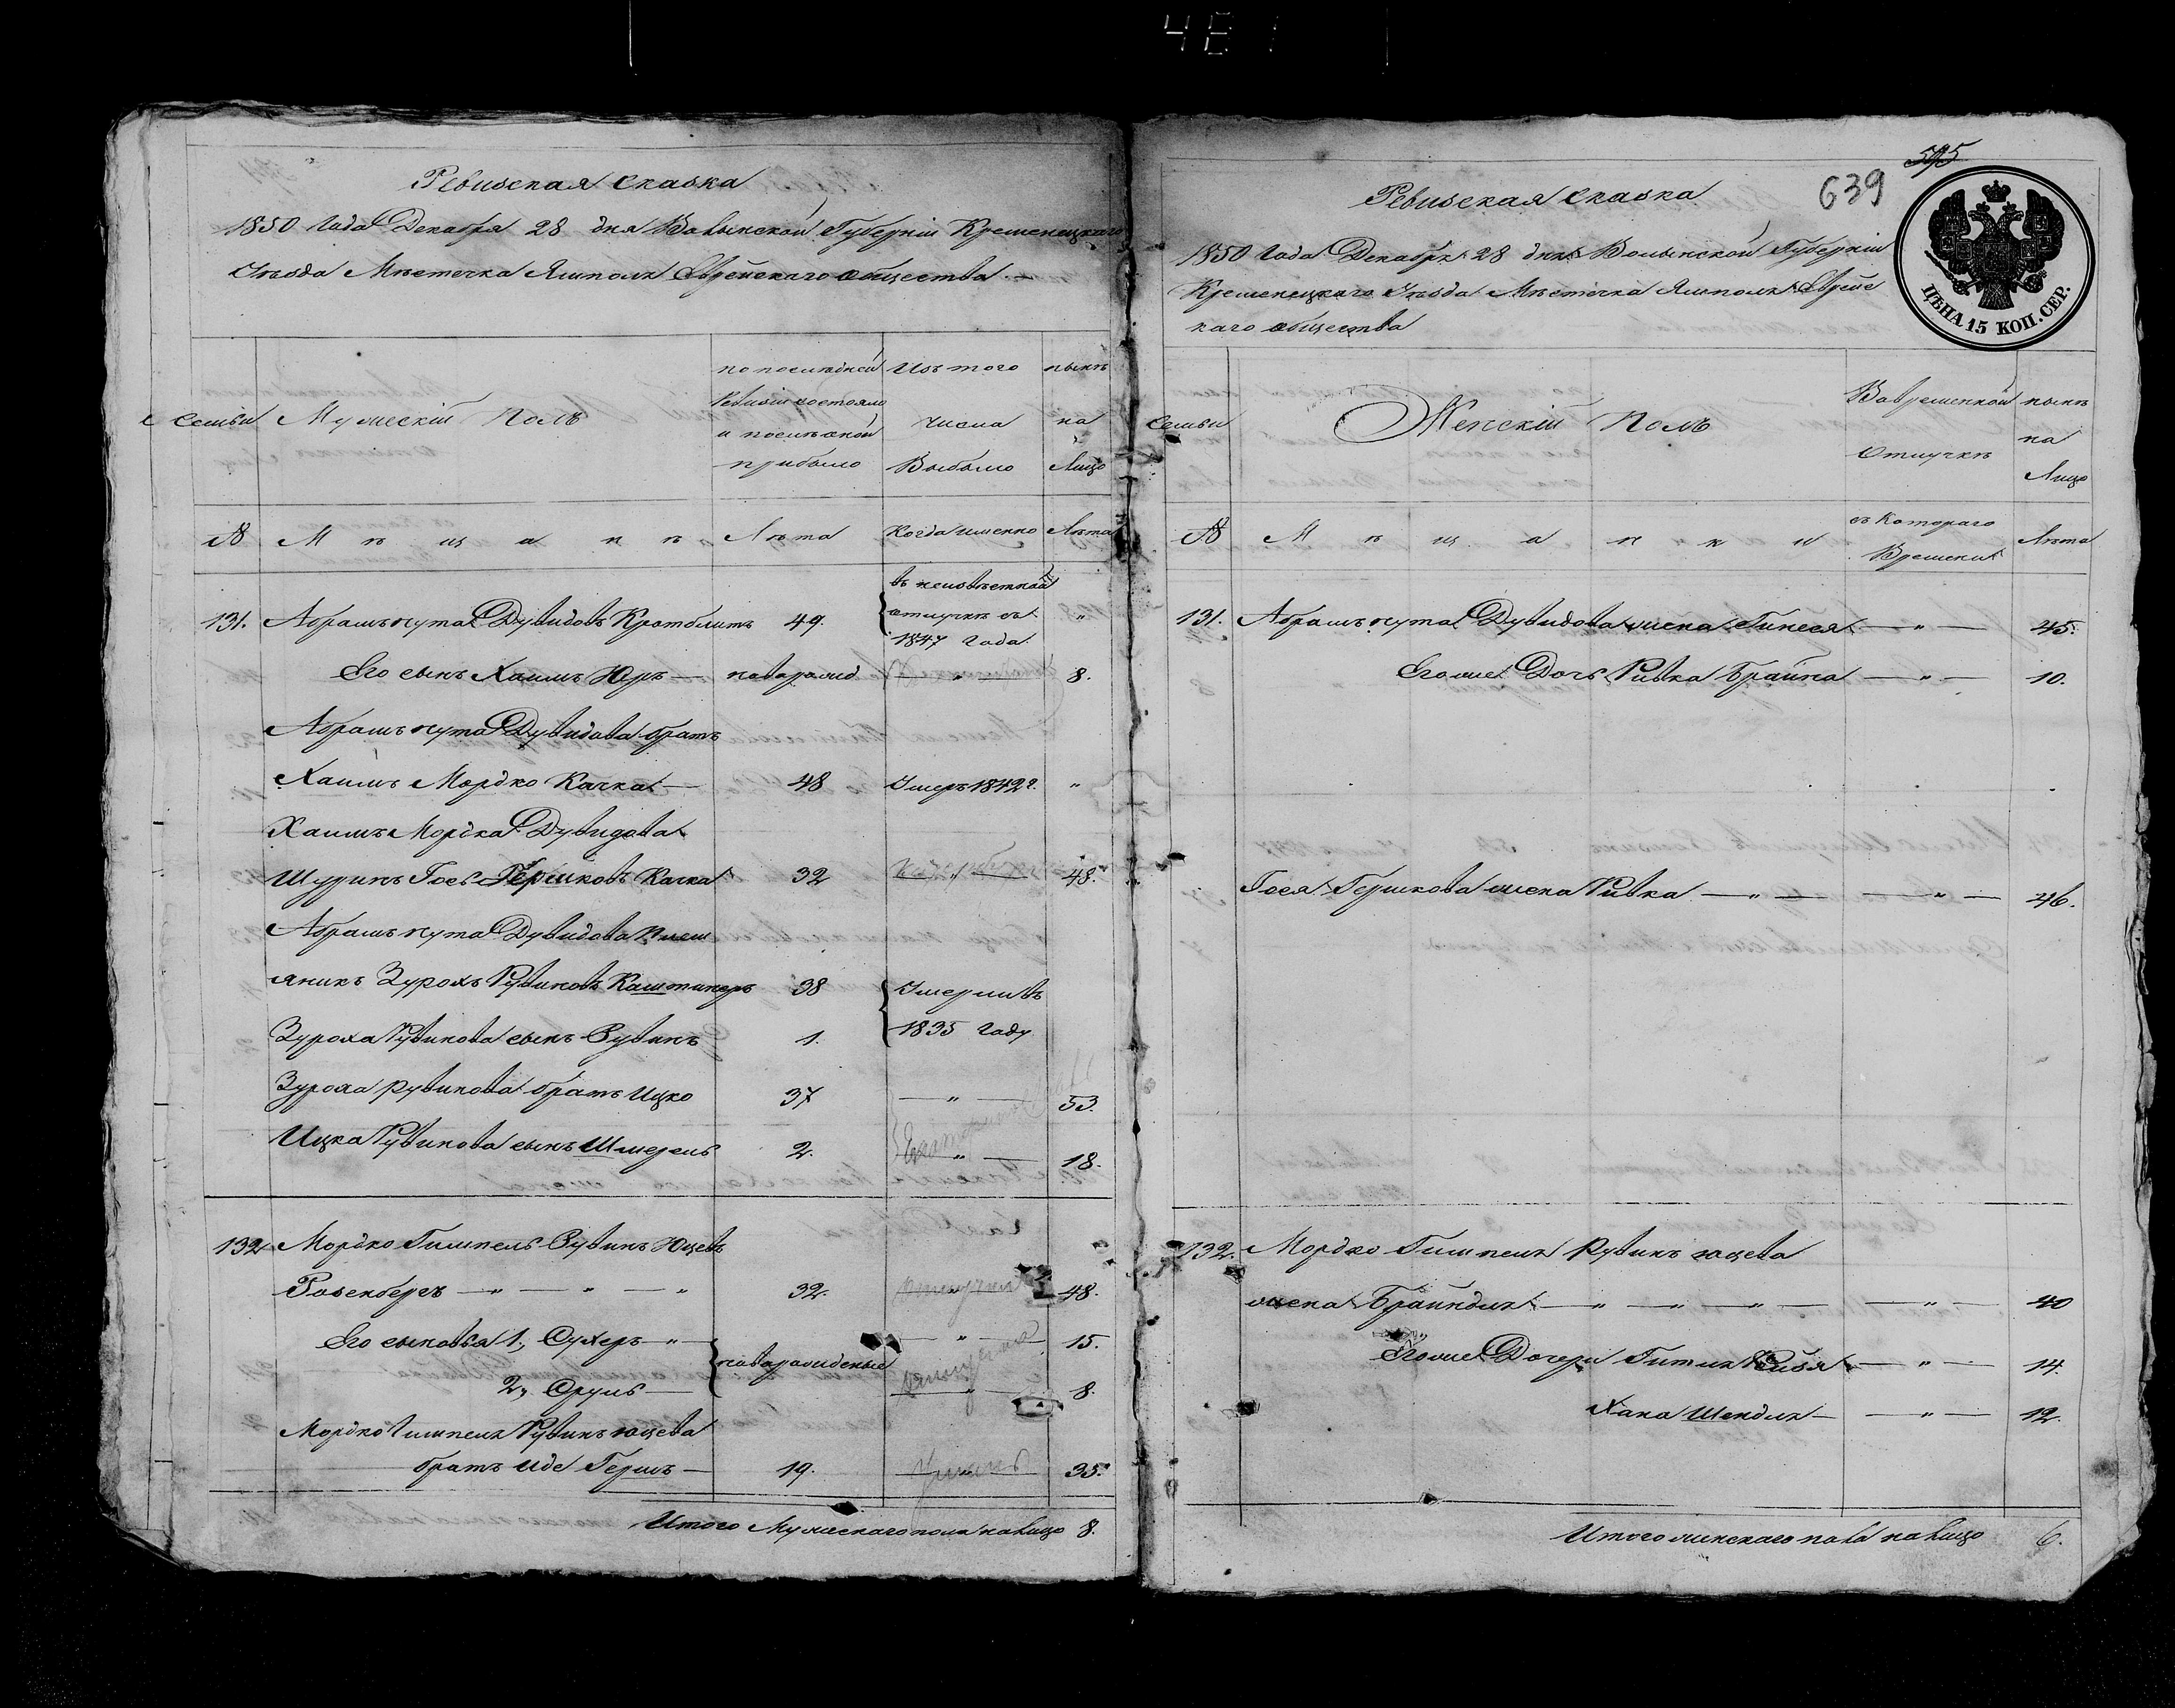 Ревизская сказка
1850 Года Декабря 28 дня Волынской Губерніи Кременецкаго
Уѣзда Мѣстечка Ямполя Еврейскаго общества
семьи
Мужескій Полъ
по послѣдней
Ревизіи состояло
и послѣ оной
прибыло
Изъ того
числа
Выбыло
нынѣ
на
Лицо
№
Мѣщанѣ
Лѣта
Когда именно
Лѣта
131. Абрамъ нута Дувидовъ Кротблитъ 49. въ неизвѣстной
отлучкѣ съ
1847 года "
Его сынъ Хаимъ Юръ — наворожд — " — 8.
Абрамъ нута Дувидова братъ
Хаимъ Мордко Качка — 48 Умеръ 1842 г. "
Хаимъ Мордка Дувидова
Шуринъ Гось Гершковъ Качка 32 — " — 48.
Абрамъ нута Дувидова Плем
яникъ Зурохъ Рувиновъ Каштинеръ 38 Умерли въ
1835 Году
Зуроха Рувинова сынъ Рувинъ 1.
Зуроха Рувинова братъ Ицко 37 — " — 53.
Ицка Рувинова сынъ Шмерель 2. — " — 18.
132 Мордко Гимпель Рувинъ Юцевъ
Розенбергъ — " — " — " 32. отлучки 48.
Его сыновья 1, Сухеръ — " — новорожденые — " — 15.
2, Сруль — — " — 8.
Мордко Гимпеля Рувинъ юцева
братъ Иде Гершъ — 19. 35.
Итого Мужескаго пола налицо 8.
595
639
ЦѢНА 15 КОП. СЕР.
Ревизская сказка
1850 Года Декабря 28 дня Волынской Губерніи
Кременецкаго Уѣзда Мѣстечка Ямполя Еврейс
каго общества
Семьи
Женскій Полъ
Во временной
Отлучкѣ
нынѣ
на
Лицо
№
Мѣщанки
съ Котораго
Времени
Лѣта
131. Абрамъ нута Дувидова жена Гинеся — " — 45.
Егоже Дочь Ривка Брайна — " — 10.
Гося Гершкова жена Ривка — " — — " — 46.
132. Мордко Гимпеля Рувинъ юцева
жена Брайндля — " — " — " — — " — 40
Егоже Дочери Гитля Рейзя — " — 14.
Хана Шендля — — " — 12.
Итого женскаго пола налицо 6.